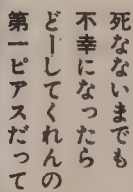 死なないまでも
不幸になったら
どーしてくれんの
第一ピアスだって